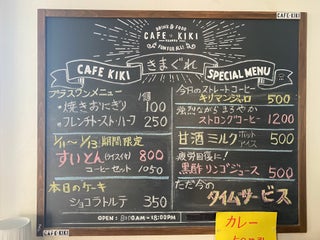 CAFE KIKI
DRINK & FOOD
CAFE KIKI
FUN FOR ALL!
CAFE KIKI
きまぐれ
SPECIAL MENU
プラスワンメニュー
・焼きおにぎり 1個 100
・フレンチトースト・ハーフ 250
1/11〜1/13 期間限定
すいとん(ライス付) 800
コーヒーセット 1050
本日のケーキ
ショコラトルテ 350
今日のストレートコーヒー
キリマンジャロ 500
ストロングコーヒー 1200
甘酒ミルク ホット アイス 500
疲労回復に!
黒酢リンゴジュース 500
ただ今
タイムサービス
OPEN: AM - 18:00PM
CAFE KIKI
カレー